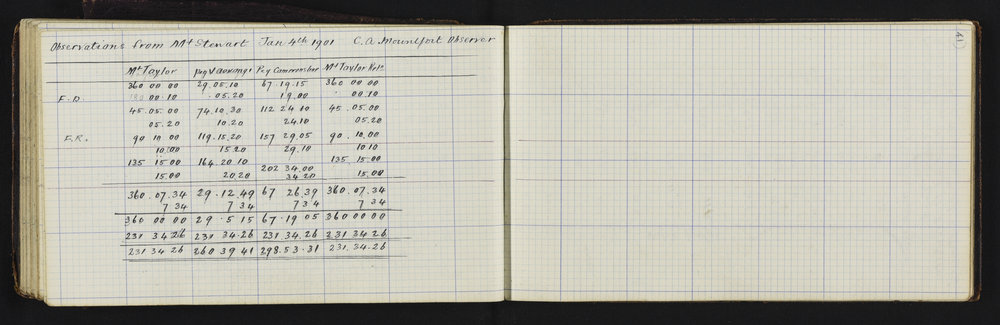 Observations from Mt Stewart Jan 4th 1901 C. A. Mountfort Observer
41
Mt Taylor Peg Mt Taylor
360 00 00 29.05.10 67.19.15 360 00 00
F.D. 180 00.10 .05.20 19.00 00.10
45.05.00 74.10.30 112 24 10 45.05.00
05.20 10.20 24.10 05.20
F.R. 90 10 00 119.15.20 157 29.05 90.10.00
10.00 15.20 29.10 10 10
135 15 00 164.20 10 202 34.00 135 15.00
15.00 20.20 34 20 15.00
360.07.34 29.12.49 67 26.39 360.07.34
7 34 7 34 7 34 7 34
360 00 00 29.5 15 67.19 05 360 00 00
231 34 26 231 34.26 231 34.26 231 34 26
231 34 26 260 39 41 298.53.31 231.34.26